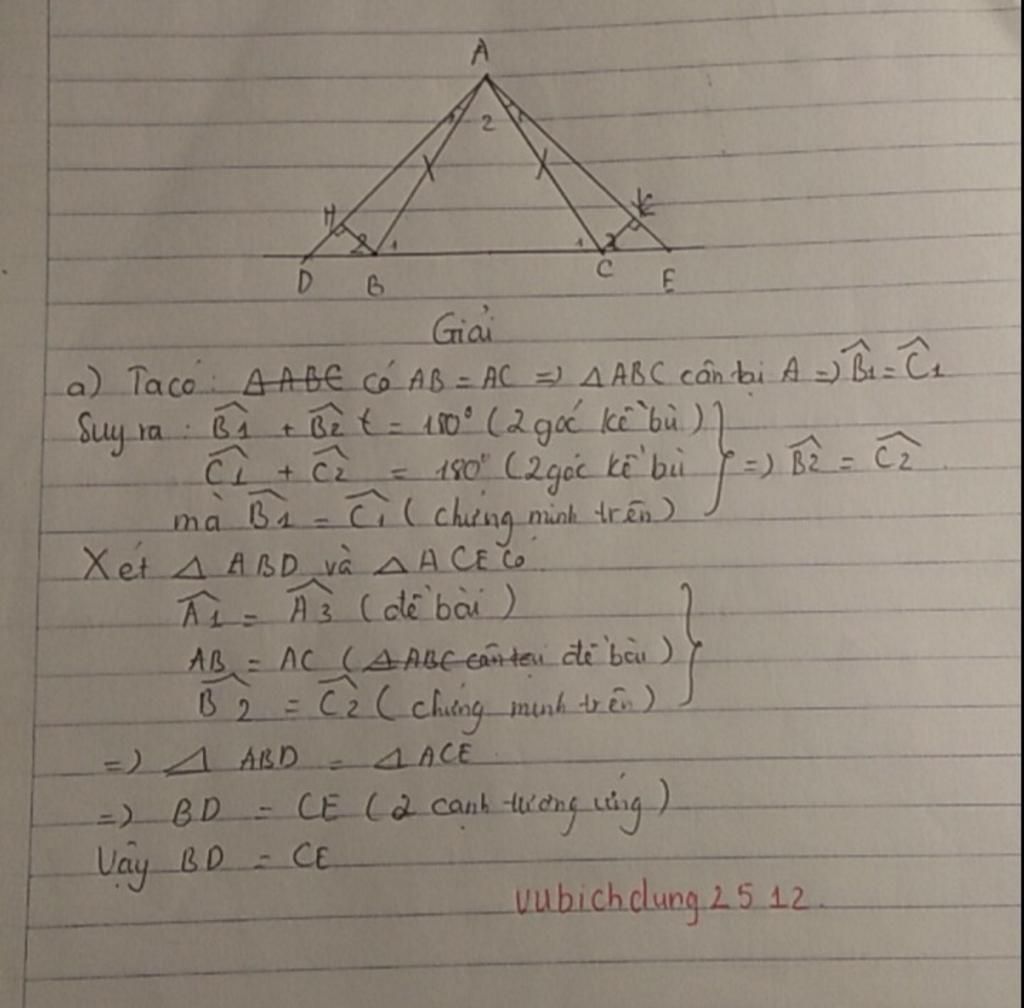 A
1 2 3
H K
2 1 1 2
D B C E
Giải
a) Ta có: ΔABC có AB = AC => ΔABC cân tại A => B̂1 = Ĉ1
Suy ra: B̂1 + B̂2 t = 180° (2 góc kề bù)
Ĉ1 + Ĉ2 = 180° (2 góc kề bù => B̂2 = Ĉ2
mà B̂1 = Ĉ1 (chứng minh trên)
Xét Δ ABD và Δ ACE có
Â1 = Â3 (đề bài)
AB = AC (ΔABC cân tại đề bài)
B̂2 = Ĉ2 (chứng minh trên)
=> Δ ABD = ΔACE
=> BD = CE (2 cạnh tương ứng)
Vậy BD = CE
vubichdung 2 5 12